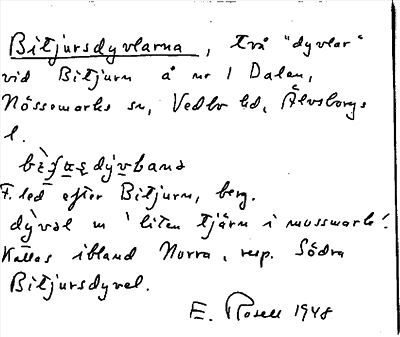 Bitjursdyvlarna, två "dyvlar"
vid Bitjurn å nr 1 Dalen,
Nössemarks sn, Vedbo hd, Älvsborgs
l.
dỳvḷana
F. led efter Bitjurn, berg.
dỳvəl m 'liten tjärn i mossmark'.
Kallas ibland Norra, resp. Södra
Bitjursdyvel.
E. Rosell 1948